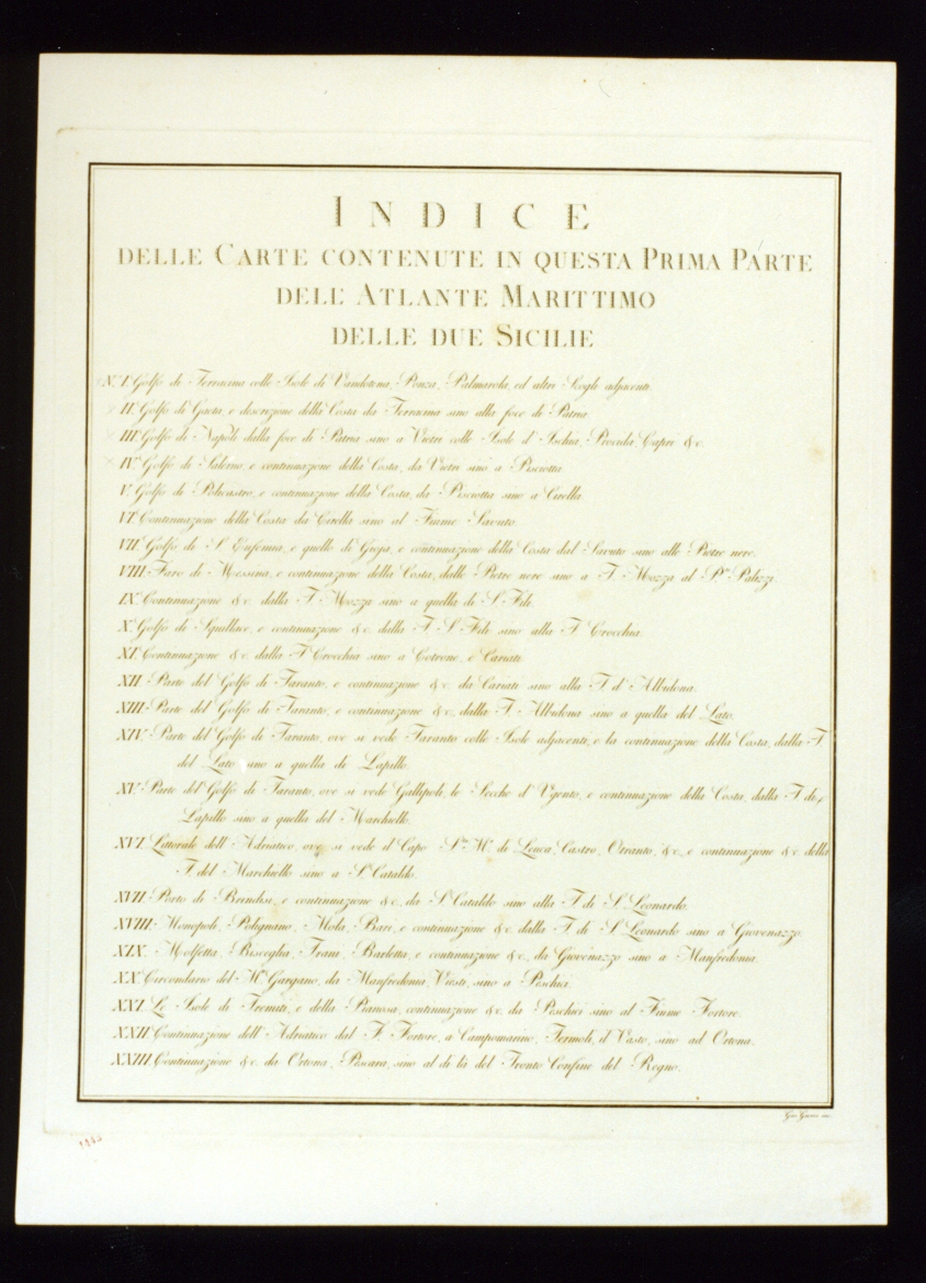 INDICE
DELLE CARTE CONTENUTE IN QUESTA PRIMA PARTE
DELL' ATLANTE MARITTIMO
DELLE DUE SICILIE
N.° I. Golfo di Terracina colle Isole di Vandotena, Ponza, Palmarola, ed altri Scogli adjacenti.
II. Golfo di Gaeta, e descrizione della Costa da Terracina sino alla foce di Patria.
III. Golfo di Napoli dalla foce di Patria sino a Vietri colle Isole d'Ischia, Procida, Capri &c.
IV. Golfo di Salerno, e continuazione della Costa, da Vietri sino a Pisciotta.
V. Golfo di Policastro, e continuazione della Costa, da Pisciotta sino a Cirella.
VI. Continuazione della Costa da Cirella sino al Fiume Savuto.
VII. Golfo di S. Eufemia, e quello di Gioja, e continuazione della Costa dal Savuto sino alle Pietre nere.
VIII. Faro di Messina, e continuazione della Costa, dalle Pietre nere sino a T. Mozza al P.mo Palizzi
IX. Continuazione &c. dalla T. Mozza sino a quella di S. Fili.
X. Golfo di Squillace, e continuazione &c. dalla T. S. Fili sino alla T. Crocchia.
XI. Continuazione &c. dalla T. Crocchia sino a Cotrone, e Cariati.
XII. Parte del Golfo di Taranto, e continuazione &c. da Cariati sino alla T. d'Albidona.
XIII. Parte del Golfo di Taranto, e continuazione &c. dalla T. Albidona sino a quella del Lato.
XIV. Parte del Golfo di Taranto, ove si vede Taranto colle Isole adjacenti, e la continuazione della Costa, dalla T.
del Lato sino a quella di Lapillo.
XV. Parte del Golfo di Taranto, ove si vede Gallipoli, le Secche d'Ugento, e continuazione della Costa, dalla T. di
Lapillo sino a quella del Marchiello.
XVI. Littorale dell'Adriatico, ove si vede il Capo S.ta M.a di Leuca, Castro, Otranto, &c., e continuazione &c. della
T. del Marchiello sino a S. Cataldo.
XVII. Porto di Brindisi, e continuazione &c. da S. Cataldo sino alla T. di S. Leonardo.
XVIII. Monopoli, Polignano, Mola, Bari, e continuazione &c. dalla T. di S. Leonardo sino a Giovenazzo.
XIX. Molfetta, Bisceglia, Trani, Barletta, e continuazione &c., da Giovenazzo sino a Manfredonia.
XX. Circondario del M.te Gargano, da Manfredonia, Viesti, sino a Peschici.
XXI. Le Isole di Tremiti, e della Pianosa, continuazione &c. da Peschici sino al Fiume Fortore.
XXII. Continuazione dell'Adriatico dal F. Fortore, a Campomarino, Termoli, il Vasto, sino ad Ortona.
XXIII. Continuazione &c. da Ortona, Pescara, sino al di là del Tronto Confine del Regno.